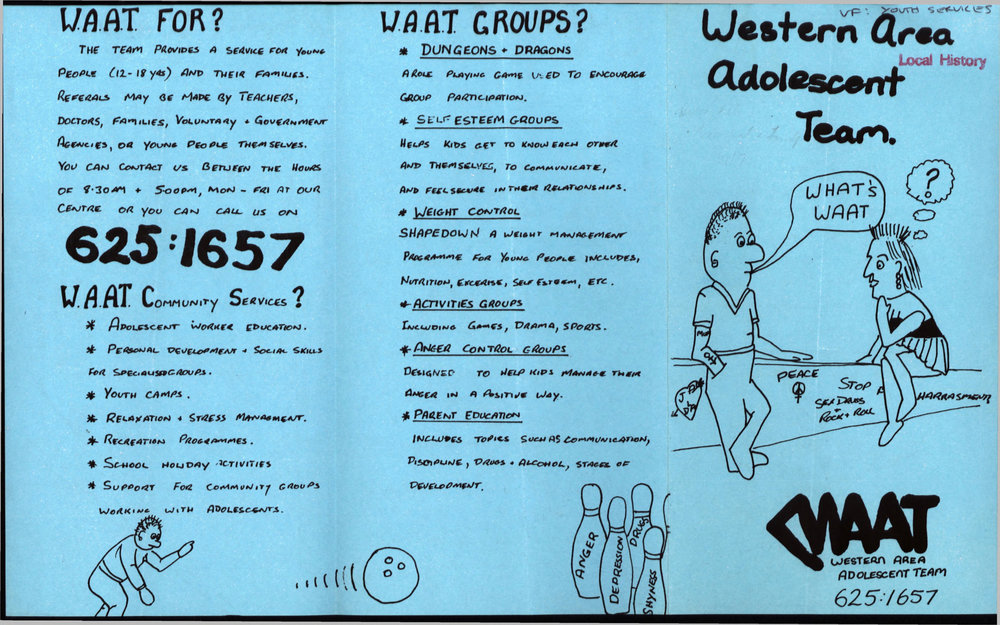 W.A.A.T. FOR?
THE TEAM PROVIDES A SERVICE FOR YOUNG
PEOPLE (12-18 yrs) AND THEIR FAMILIES.
REFERALS MAY BE MADE BY TEACHERS,
DOCTORS, FAMILIES, VOLUNTARY + GOVERNMENT
AGENCIES, OR YOUNG PEOPLE THEMSELVES.
YOU CAN CONTACT US BETWEEN THE HOURS
OF 8.30AM + 5.00PM, MON - FRI AT OUR
CENTRE OR YOU CAN CALL US ON
625:1657
W.A.A.T. COMMUNITY SERVICES?
* ADOLESCENT WORKER EDUCATION.
* PERSONAL DEVELOPMENT + SOCIAL SKILLS
FOR SPECIALISED GROUPS.
* YOUTH CAMPS.
* RELAXATION + STRESS MANAGMENT.
* RECREATION PROGRAMMES.
* SCHOOL HOLIDAY ACTIVITIES
* SUPPORT FOR COMMUNITY GROUPS
WORKING WITH ADOLESCENTS.
W.A.A.T GROUPS?
* DUNGEONS + DRAGONS
A ROLE PLAYING GAME USED TO ENCOURAGE
GROUP PARTICIPATION.
* SELF ESTEEM GROUPS
HELPS KIDS GET TO KNOW EACH OTHER
AND THEMSELVES, TO COMMUNICATE,
AND FEEL SECURE IN THEIR RELATIONSHIPS.
* WEIGHT CONTROL
SHAPEDOWN A WEIGHT MANAGEMENT
PROGRAMME FOR YOUNG PEOPLE INCLUDES,
NUTRITION, EXCERISE, SELF ESTEEM, ETC.
* ACTIVITIES GROUPS
INCLUDING GAMES, DRAMA, SPORTS.
* ANGER CONTROL GROUPS
DESIGNED TO HELP KIDS MANAGE THEIR
ANGER IN A POSITIVE WAY.
* PARENT EDUCATION
INCLUDES TOPICS SUCH AS COMMUNICATION,
DISCIPLINE, DRUGS + ALCOHOL, STAGES OF
DEVELOPMENT.
ANGER
DEPRESSION
DRUGS
SHYNESS
VF: YOUTH SERVICES
Western Area
Local History
Adolescent
Team.
WHAT'S
WAAT
?
PEACE
STOP
HARRASMENT
SEX DRUGS
+
ROCK + ROLL
WAAT
WESTERN AREA
ADOLESCENT TEAM
625:1657